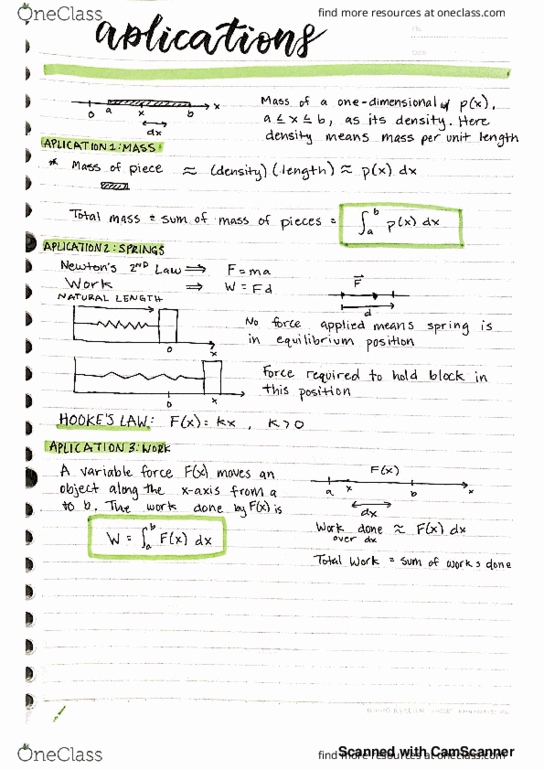 OneClass
find more resources at oneclass.com
aplications
0 a x b x
dx
Mass of a one-dimensional w/ p(x),
a ≤ x ≤ b, as its density. Here
density means mass per unit length
APLICATION 1: MASS
* Mass of piece ≈ (density)(length) ≈ p(x) dx
Total mass = sum of mass of pieces = ∫ₐᵇ p(x) dx
APLICATION 2: SPRINGS
Newton's 2ND Law ⟹ F = ma
Work ⟹ W = Fd
F
d
NATURAL LENGTH
0 x
No force applied means spring is
in equilibrium position
0 x
Force required to hold block in
this position
HOOKE'S LAW: F(x) = kx , K > 0
APLICATION 3: WORK
A variable force F(x) moves an
object along the x-axis from a
to b. The work done by F(x) is
W = ∫ₐᵇ F(x) dx
F(x)
a x b x
dx
Work done ≈ F(x) dx
over dx
Total Work = sum of works done
OneClass
find more resources at oneclass.com
Scanned with CamScanner